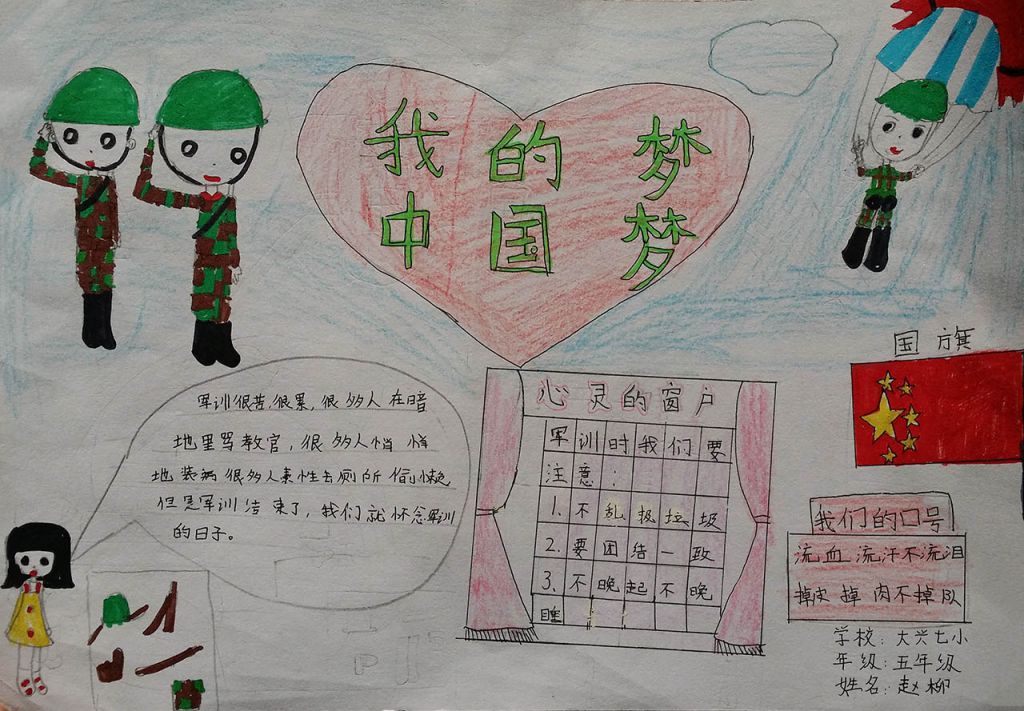 我的梦
中国梦
军训很苦,很累,很多人在暗
地里骂教官,很多人悄悄
地装病很多人索性去厕所偷懒
但是军训结束了,我们就怀念军训
的日子。
心灵的窗户
军训时我们要
注意:
1.不乱扔垃圾
2.要团结一致
3.不晚起不晚
睡
国旗
我们的口号
流血流汗不流泪
掉皮掉肉不掉队
学校:大兴七小
年级:五年级
姓名:赵柳